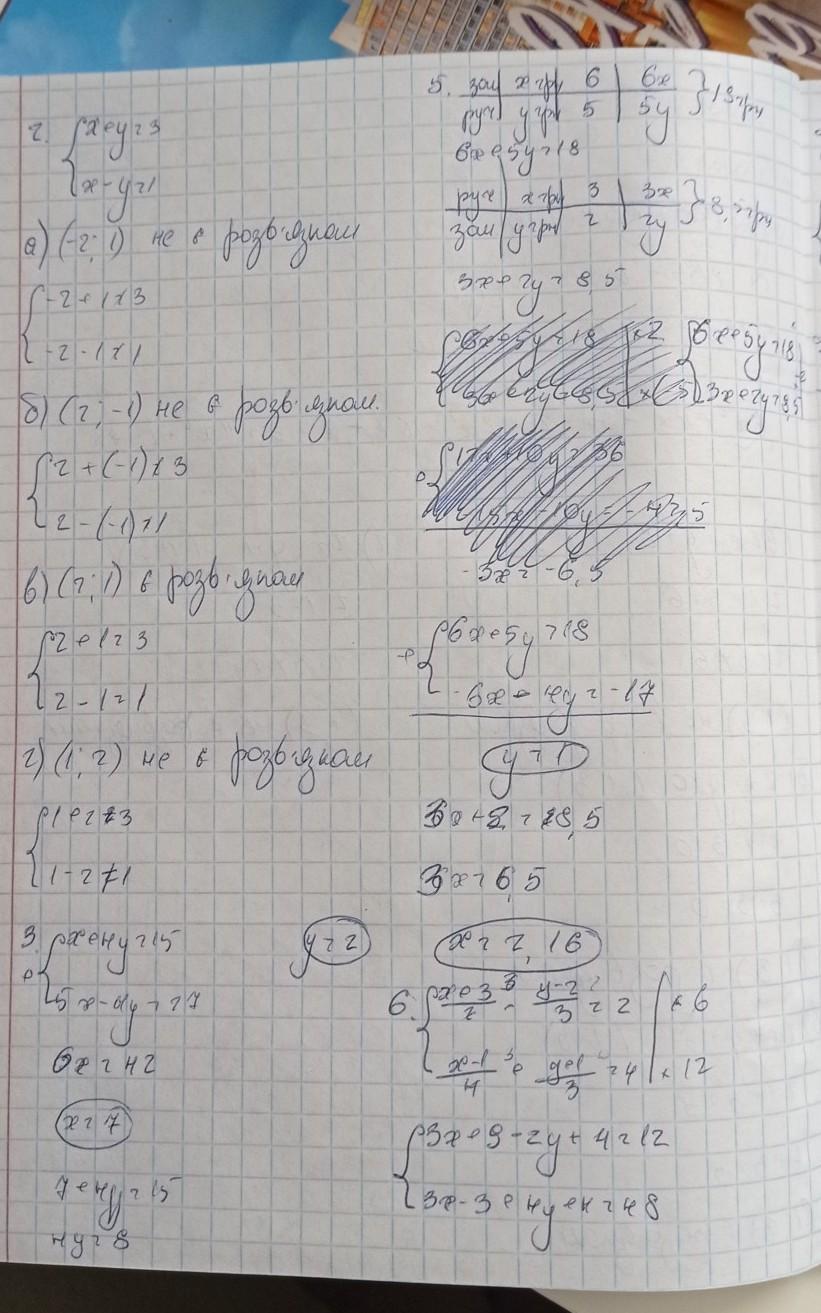 2. { x+y=3
x-y=1
а) (-2; 1) не є розв'язком
{ -2+1≠3
-2-1≠1
б) (2; -1) не є розв'язком.
{ 2+(-1)≠3
2-(-1)≠1
в) (2; 1) є розв'язком
{ 2+1=3
2-1=1
г) (1; 2) не є розв'язком
{ 1+2=3
1-2≠1
3. + { x+4y=15
5x-4y=27
6x=42
x=7
7+4y=15
4y=8
y=2
5. зош | x грн | 6 | 6x
руч | y грн | 5 | 5y } 18 грн
6x+5y=18
руч | x грн | 3 | 3x
зош | y грн | 2 | 2y } 8,5 грн
3x+2y=8,5
{ 6x+5y=18
3x+2y=8,5
-3x=-6,5
+ { 6x+5y=18
-6x-4y=-17
y=1
3x+2=8,5
3x=6,5
x=2,16
6. { x+3/2 - y-2/3 = 2 | × 6
x-1/4 + y+1/3 = 4 | × 12
{ 3x+9-2y+4=12
3x-3+4y+4=48